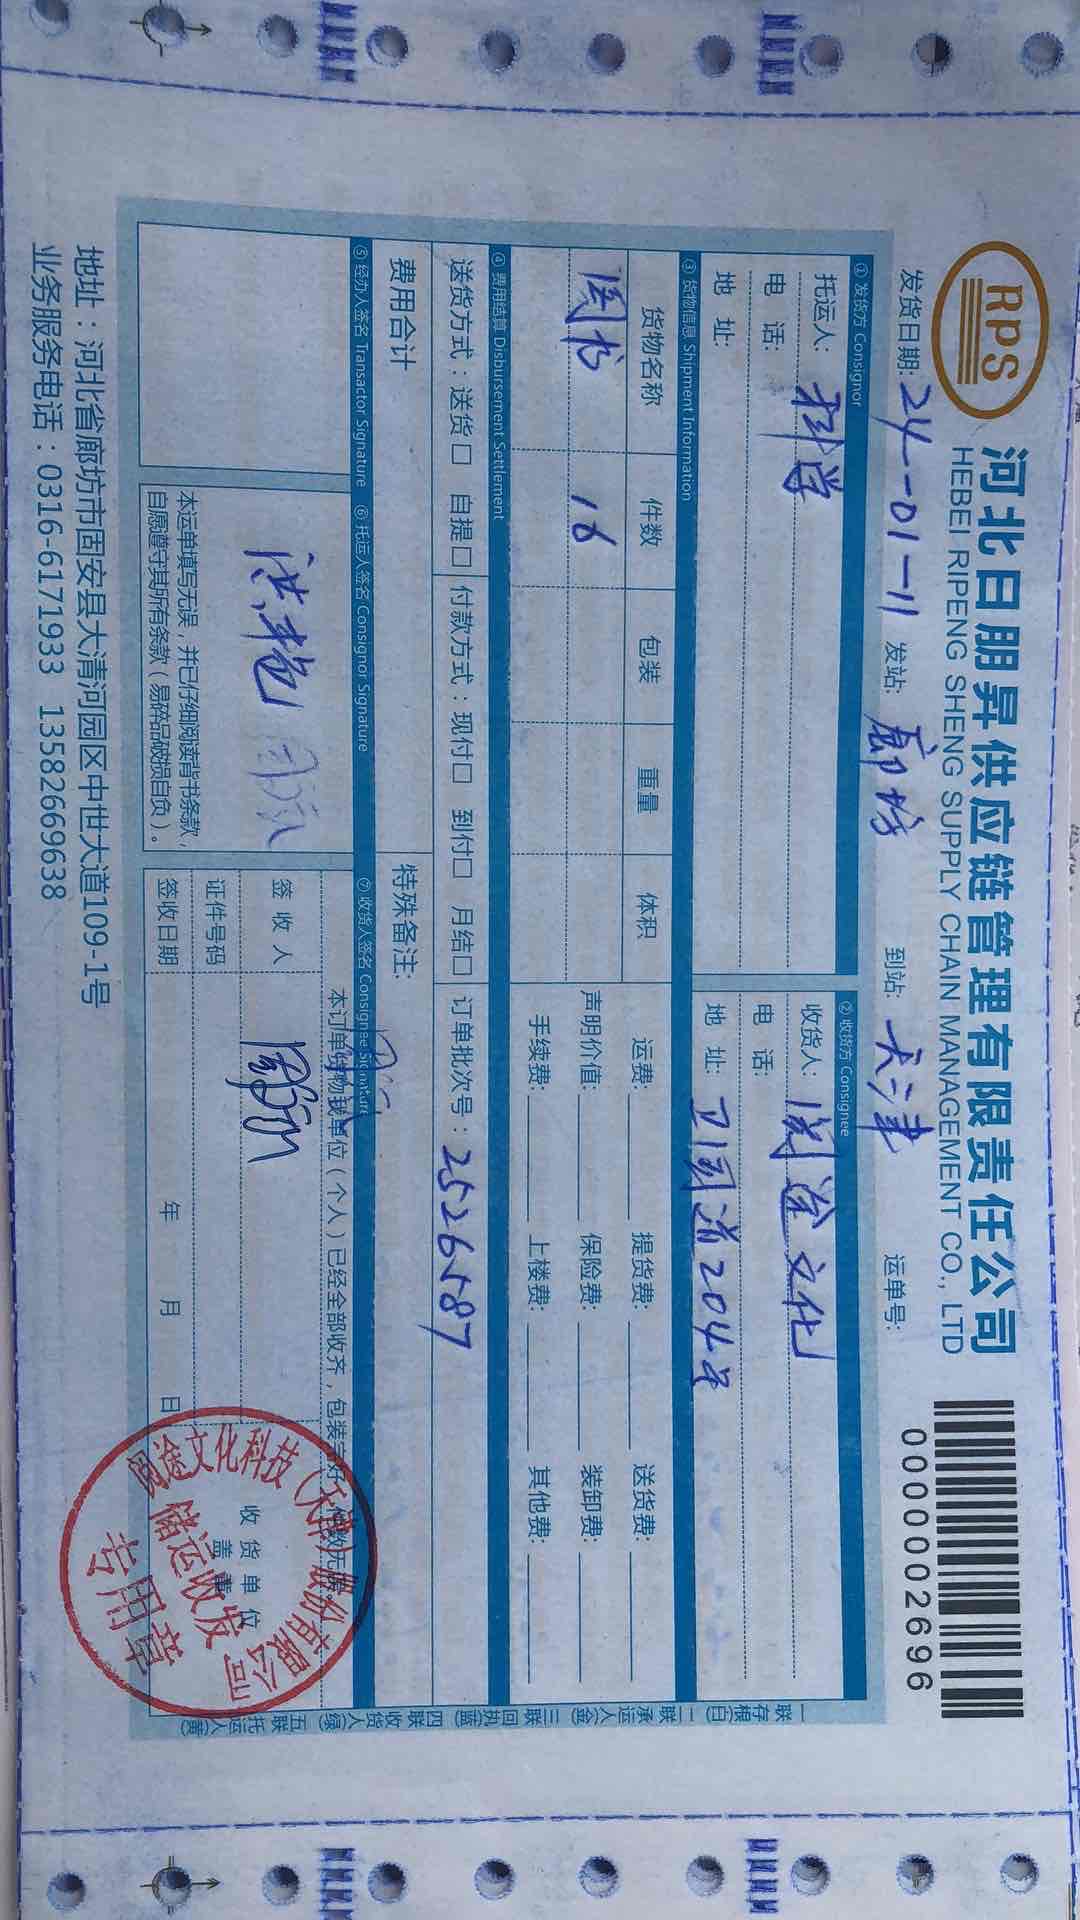 RPS
河北日朋昇供应链管理有限责任公司
HEBEI RIPENG SHENG SUPPLY CHAIN MANAGEMENT CO., LTD
0000002696
发货日期: 24-01-11 发站: 廊坊 到站: 天津 运单号:
① 发货方 Consignor
托运人: 科学
电 话:
地 址:
② 收货方 Consignee
收货人: 阅途文化
电 话:
地 址: 卫国道204号
③ 货物信息 Shipment Information
货物名称 件数 包装 重量 体积
图书 16
运费: 提货费: 送货费:
声明价值: 保险费: 装卸费:
手续费: 上楼费: 其他费:
④ 费用结算 Disbursement Settlement
送货方式:送货□ 自提□ 付款方式:现付□ 到付□ 月结□ 订单批次号: 2526587
费用合计 特殊备注:
⑤ 经办人签名 Transactor Signature ⑥ 托运人签名 Consignor Signature ⑦ 收货人签名 Consignee Signature
本运单填写无误,并已仔细阅读背书条款,
自愿遵守其所有条款(易碎品破损自负)。
本订单货物我单位(个人)已经全部收齐,包装完好,件数无误。
签 收 人
证件号码
签收日期 年 月 日
收货单位
盖章
阅途文化科技(天津)股份有限公司
储运收发
专用章
一联存根(白) 二联承运人(金) 三联回执(蓝) 四联收货人(绿) 五联托运人(黄)
地址:河北省廊坊市固安县大清河园区中世大道109-1号
业务服务电话:0316-6171933 13582669638